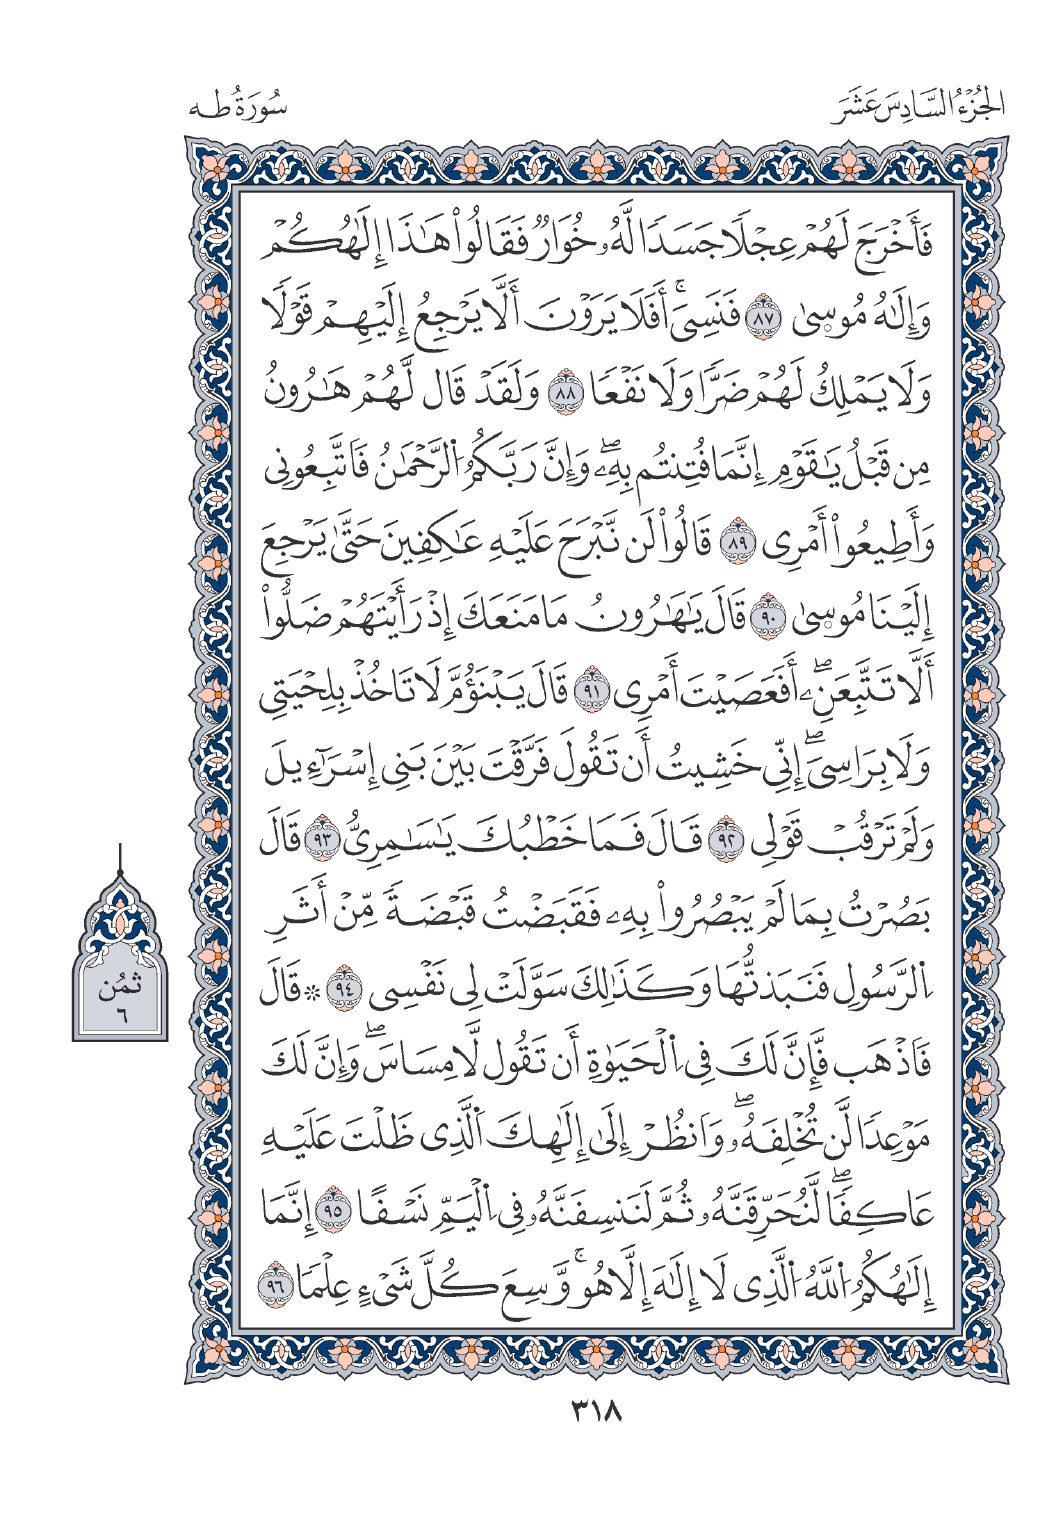 الجُزْءُ السَّادِسَ عَشَرَ
سُورَةُ طه
فَأَخْرَجَ لَهُمْ عِجْلًا جَسَدًا لَّهُۥ خُوَارٌ فَقَالُواْ هَٰذَا إِلَٰهُكُمْ
وَإِلَٰهُ مُوسِىٰ ٨٧ فَنَسِىَۚ أَفَلَا يَرَوْنَ أَلَّا يَرْجِعُ إِلَيْهِمْ قَوْلًا
وَلَا يَمْلِكُ لَهُمْ ضَرًّا وَلَا نَفْعًا ٨٨ وَلَقَدْ قَال لَّهُمْ هَٰرُونُ
مِن قَبْلُ يَٰقَوْمِ إِنَّمَا فُتِنتُم بِهِۦۖ وَإِنَّ رَبَّكُمُ اُ۬لرَّحْمَٰنُ فَاتَّبِعُونِى
وَأَطِيعُواْ أَمْرِى ٨٩ قَالُواْ لَن نَّبْرَحَ عَلَيْهِ عَٰكِفِينَ حَتَّىٰ يَرْجِعَ
إِلَيْنَا مُوسِىٰ ٩٠ قَالَ يَٰهَٰرُونُ مَا مَنَعَكَ إِذْ رَأَيْتَهُمْ ضَلُّواْ
أَلَّا تَتَّبِعَنِۦۖ أَفَعَصَيْتَ أَمْرِى ٩١ قَالَ يَبْنَؤُمَّ لَا تَاخُذْ بِلِحْيَتِى
وَلَا بِرَاسِىَۖ إِنِّى خَشِيتُ أَن تَقُولَ فَرَّقْتَ بَيْنَ بَنِى إِسْرَٰٓءِيلَ
وَلَمْ تَرْقُبْ قَوْلِى ٩٢ قَالَ فَمَا خَطْبُكَ يَٰسَٰمِرِىُّ ٩٣ قَالَ
بَصُرْتُ بِمَا لَمْ يَبْصُرُواْ بِهِۦ فَقَبَضْتُ قَبْضَةً مِّنْ أَثَرِ
اِ۬لرَّسُولِ فَنَبَذتُّهَا وَكَذَٰلِكَ سَوَّلَتْ لِى نَفْسِى ٩٤ ۞ قَالَ
فَاَذْهَب فَّإِنَّ لَكَ فِى اِ۬لْحَيَوٰةِ أَن تَقُول لَّا مِسَاسَۖ وَإِنَّ لَكَ
مَوْعِدًا لَّن تُخْلِفَهُۥۖ وَاَنظُرْ إِلَىٰ إِلَٰهِكَ اَ۬لَّذِى ظَلْتَ عَلَيْهِ
عَاكِفًاۖ لَّنُحَرِّقَنَّهُۥ ثُمَّ لَنَنسِفَنَّهُۥ فِى اِ۬لْيَمِّ نَسْفًا ٩٥ إِنَّمَا
إِلَٰهُكُمُ اُ۬للَّهُ اُ۬لَّذِى لَا إِلَٰهَ إِلَّا هُوَۚ وَسِعَ كُلَّ شَىْءٍ عِلْمًا ٩٦
ثمُن
٦
٣١٨